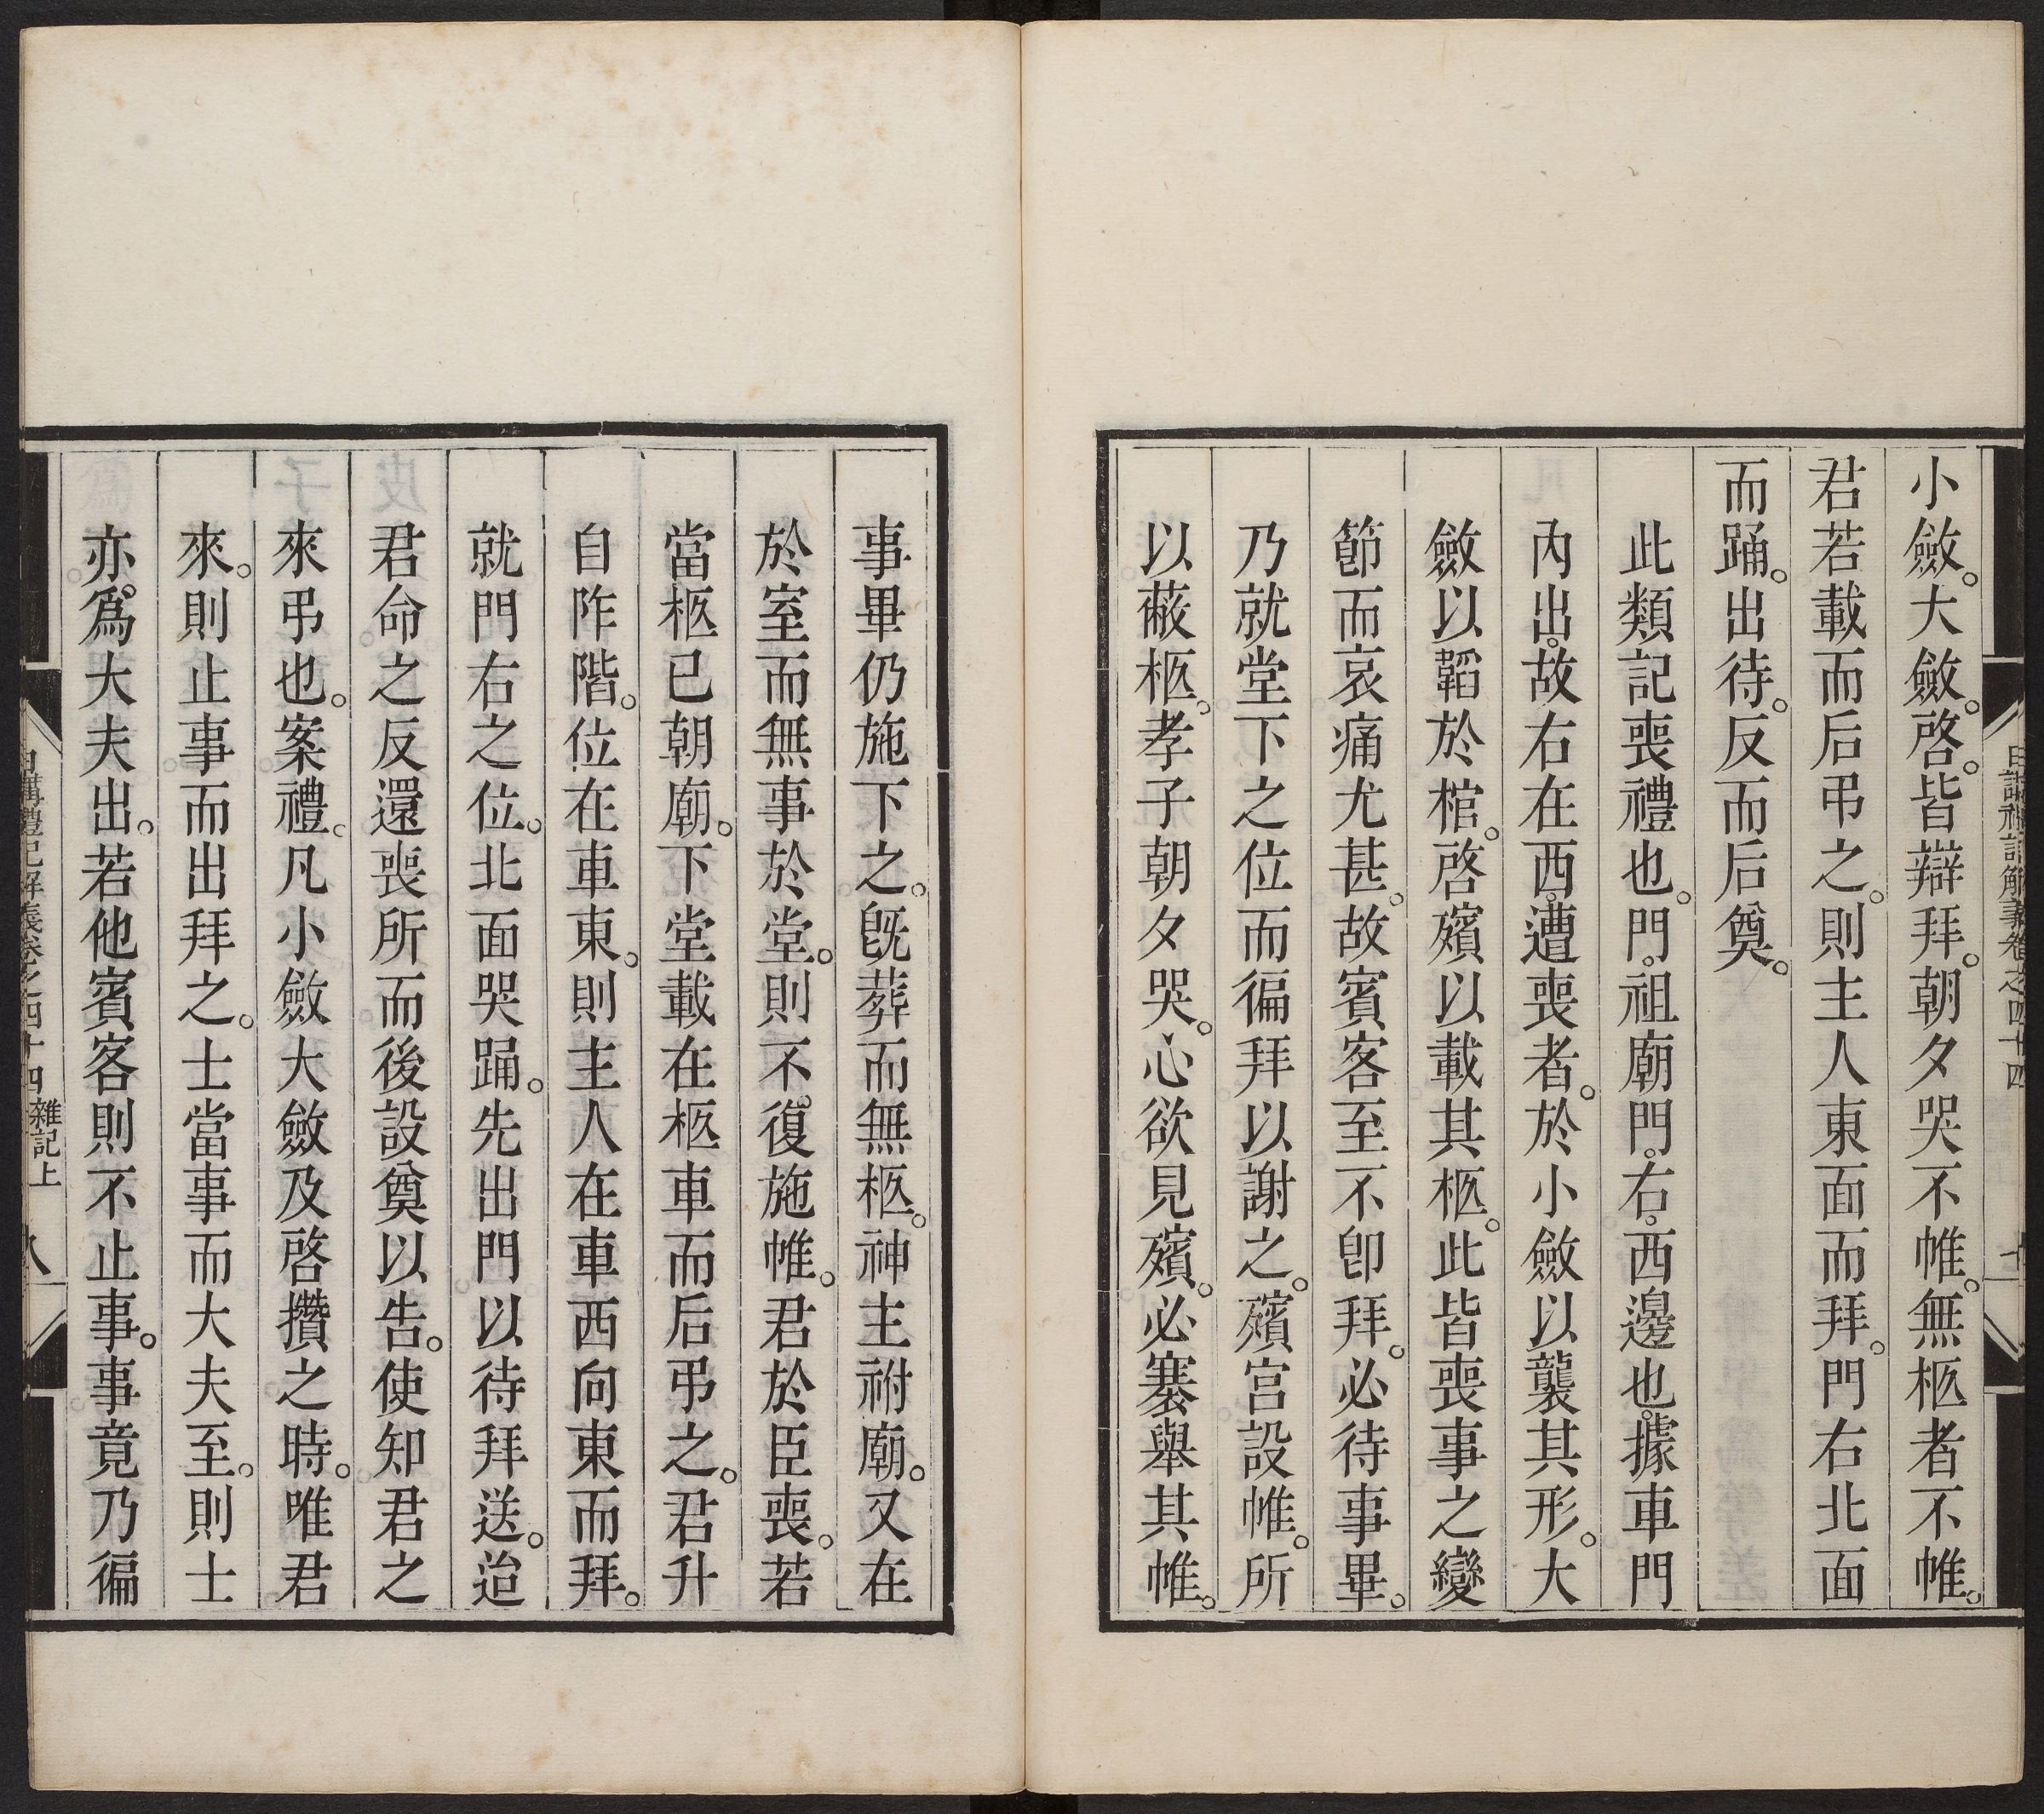 小斂。大斂。啓。皆辯拜。朝夕哭不帷。無柩者不帷。
君若載而后弔之。則主人東面而拜。門右北面
而踊。出待。反而后奠。
此類記喪禮也。門。祖廟門。右。西邊也。據車門
內出。故右在西。遭喪者。於小斂以襲其形。大
斂以韜於棺。啓殯以載其柩。此皆喪事之變
節而哀痛尤甚。故賓客至不卽拜。必待事畢。
乃就堂下之位而徧拜以謝之。殯宮設帷。所
以蔽柩。孝子朝夕哭。心欲見殯。必褰舉其帷。
事畢仍施下之。旣葬而無柩。神主祔廟。又在
於室而無事於堂。則不復施帷。君於臣喪。若
當柩已朝廟。下堂載在柩車而后弔之。君升
自阼階。位在車東。則主人在車西向東而拜。
就門右之位。北面哭踊。先出門以待拜送。迨
君命之反還喪所而後設奠以告。使知君之
來弔也。案禮。凡小斂大斂及啓攢之時。唯君
來。則止事而出拜之。士當事而大夫至。則士
亦。爲大夫出。若他賓客則不止事。事竟乃徧
日講禮記解義卷之四十四 雜記上